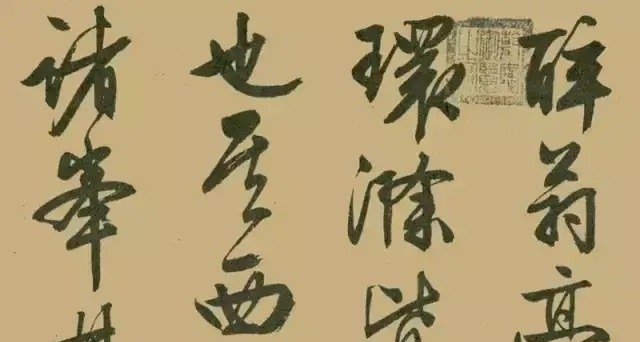 醉翁亭
環滁皆
也其西
諸峯林